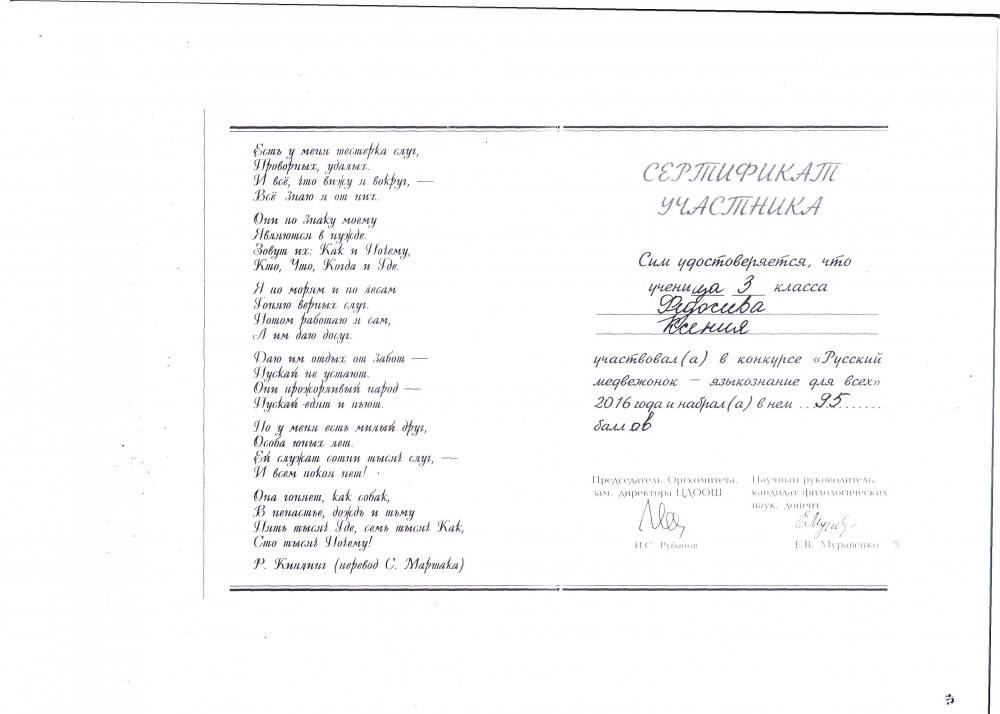 Есть у меня шестерка слуг,
Проворных, удалых.
И всё, что вижу я вокруг, —
Всё знаю я от них.
Они по знаку моему
Являются в нужде.
Зовут их: Как и Почему,
Кто, Что, Когда и Где.
Я по морям и по лесам
Гоняю верных слуг.
Потом работаю я сам,
А им даю досуг.
Даю им отдых от забот —
Пускай не устают.
Они прожорливый народ —
Пускай едят и пьют.
Но у меня есть милый друг,
Особа юных лет.
Ей служат сотни тысяч слуг, —
И всем покоя нет!
Она гоняет, как собак,
В ненастье, дождь и тьму
Пять тысяч Где, семь тысяч Как,
Сто тысяч Почему!
Р. Киплинг (перевод С. Маршака)
СЕРТИФИКАТ
УЧАСТНИКА
Сим удостоверяется, что
ученица 3 класса
Федосеева
Ксения
участвовал(а) в конкурсе «Русский
медвежонок – языкознание для всех»
2016 года и набрал(а) в нем ...95.......
баллов
Председатель Оргкомитета,
зам. директора ЦДООШ
И.С. Рубанов
Научный руководитель,
кандидат филологических
наук, доцент
Е.В. Муравенко